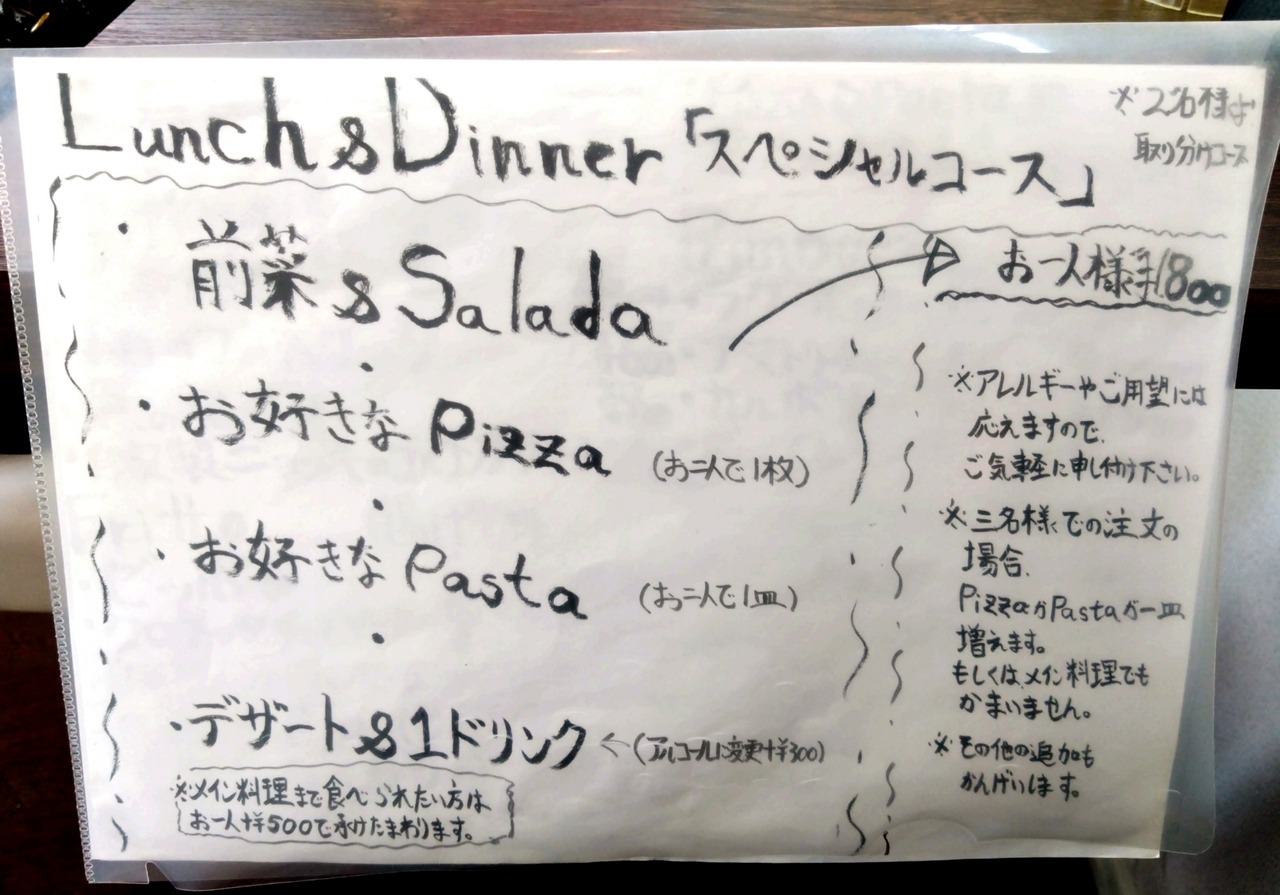 Lunch & Dinner 「スペシャルコース」
※2名様よ
取り分けコース
・前菜 & Salada
お一人様¥1800
・お好きな Pizza (お二人で1枚)
・お好きな Pasta (お二人で1皿)
・デザート & 1ドリンク ← (アルコールに変更+¥300)
※メイン料理まで食べられたい方は
お一人+¥500で承けたまわります。
※アレルギーやご用望には
応えますので、
ご気軽に申し付け下さい。
※三名様での注文の
場合、
PizzaかPastaが一皿
増えます。
もしくは、メイン料理でも
かまいません。
※その他の追加も
かんげいします。